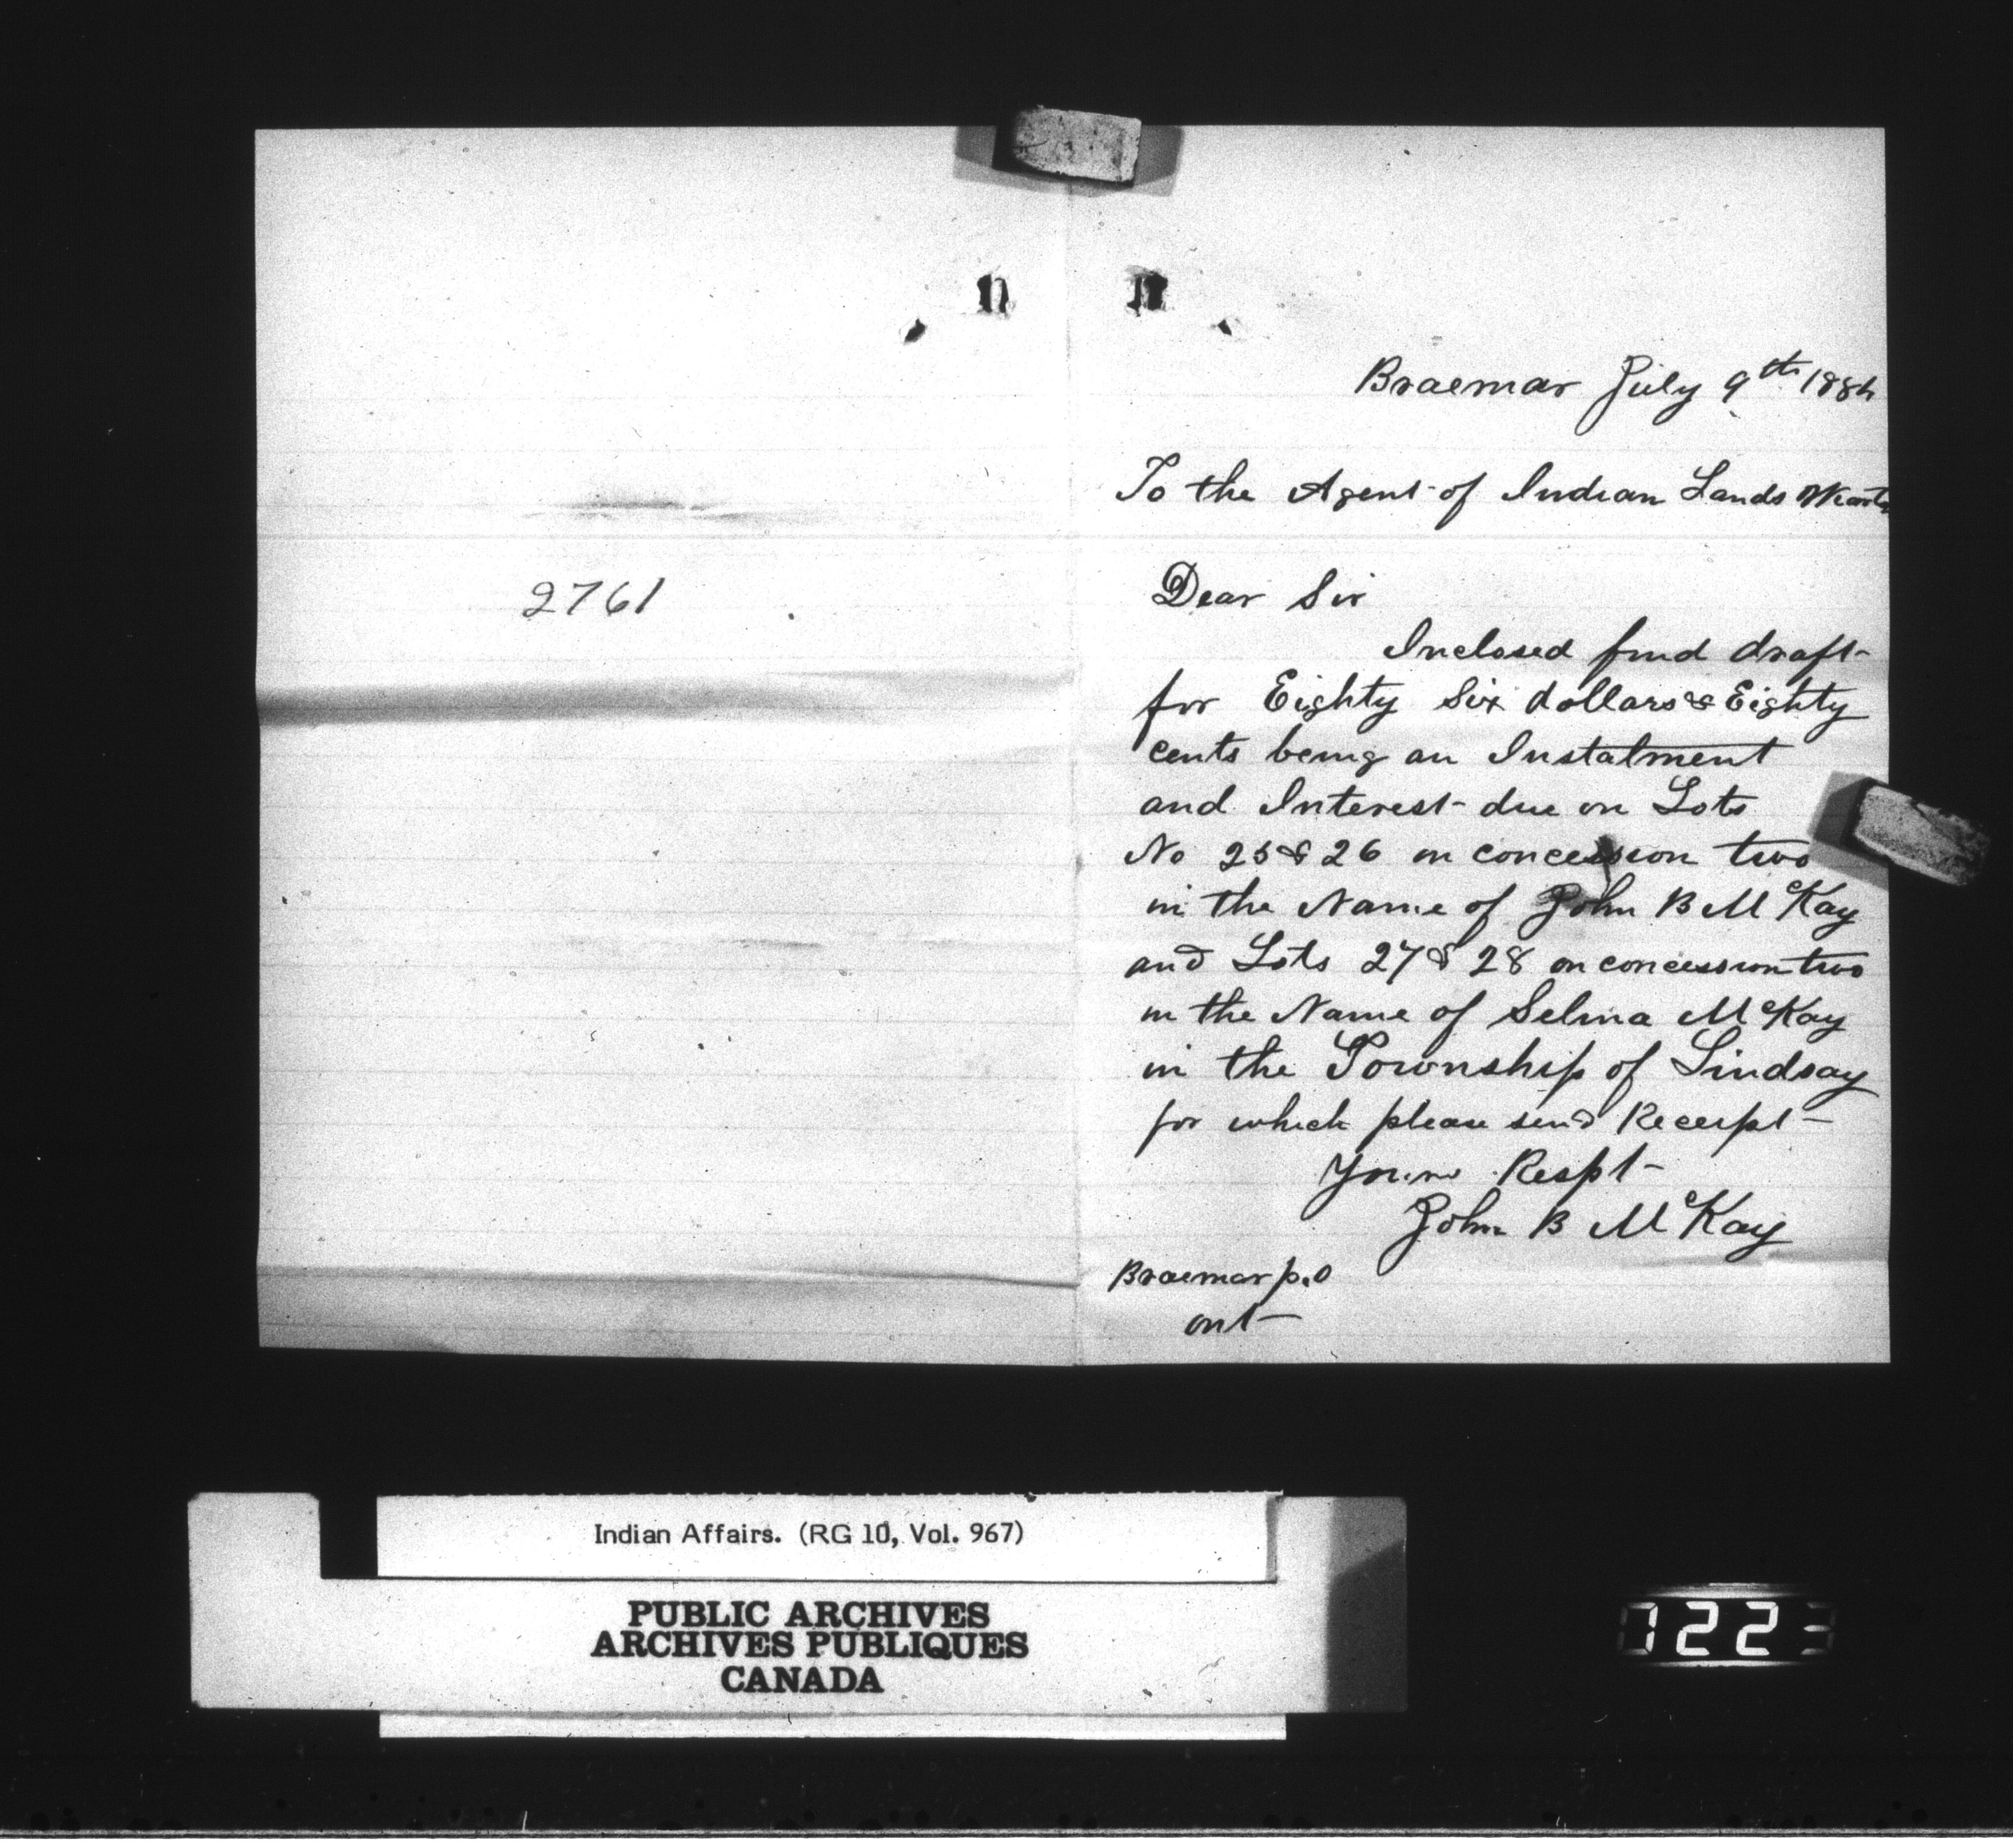 2761
Braemar July 9th 1884
To the Agent of Indian Lands Wiarton
Dear Sir
Inclosed find draft
for Eighty Six dollars & Eighty
cents being an Instalment
and Interest due on Lots
No 25 & 26 on concession two
in the Name of John B McKay
and Lots 27 & 28 on concession two
in the Name of Selina McKay
in the Township of Lindsay
for which please send Receipt
Yours Respt
John B McKay
Braemar p.o
ont
Indian Affairs. (RG 10, Vol. 967)
PUBLIC ARCHIVES
ARCHIVES PUBLIQUES
CANADA